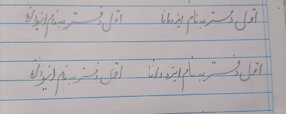 اول دفتر به نام ایزد دانا اول دفتر به نام ایزد دانا
اول دفتر به نام ایزد دانا اول دفتر به نام ایزد دانا